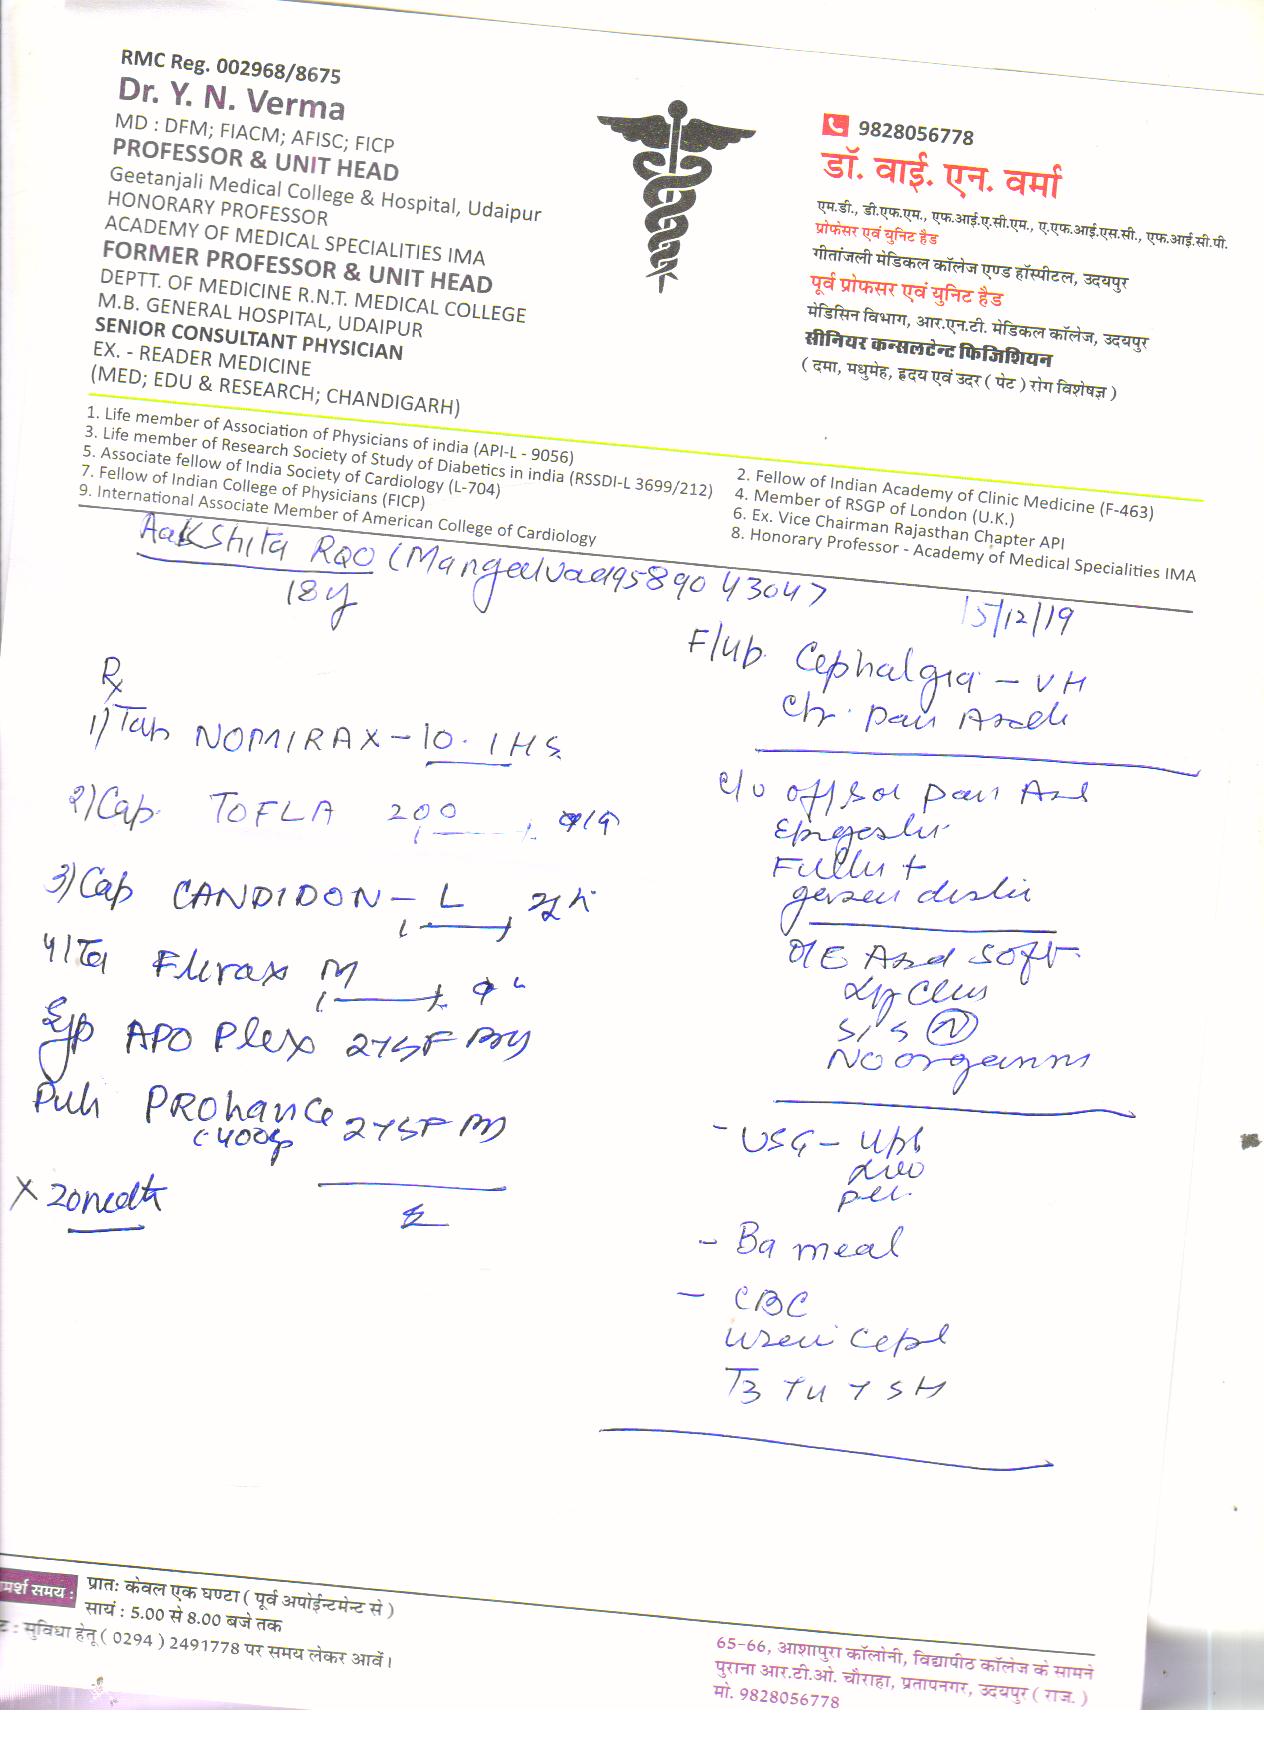 RMC Reg. 002968/8675
Dr. Y. N. Verma
MD : DFM; FIACM; AFISC; FICP
PROFESSOR & UNIT HEAD
Geetanjali Medical College & Hospital, Udaipur
HONORARY PROFESSOR
ACADEMY OF MEDICAL SPECIALITIES IMA
FORMER PROFESSOR & UNIT HEAD
DEPTT. OF MEDICINE R.N.T. MEDICAL COLLEGE
M.B. GENERAL HOSPITAL, UDAIPUR
SENIOR CONSULTANT PHYSICIAN
EX. - READER MEDICINE
(MED; EDU & RESEARCH; CHANDIGARH)
9828056778
डॉ. वाई. एन. वर्मा
एम.डी., डी.एफ.एम., एफ.आई.ए.सी.एम., ए.एफ.आई.एस.सी., एफ.आई.सी.पी.
प्रोफेसर एवं युनिट हैड
गीतांजली मेडिकल कॉलेज एण्ड हॉस्पीटल, उदयपुर
पूर्व प्रोफसर एवं युनिट हैड
मेडिसिन विभाग, आर.एन.टी. मेडिकल कॉलेज, उदयपुर
सीनियर कन्सलटेन्ट फिजिशियन
( दमा, मधुमेह, हृदय एवं उदर ( पेट ) रोग विशेषज्ञ )
1. Life member of Association of Physicians of india (API-L - 9056)
3. Life member of Research Society of Study of Diabetics in india (RSSDI-L 3699/212)
5. Associate fellow of India Society of Cardiology (L-704)
7. Fellow of Indian College of Physicians (FICP)
9. International Associate Member of American College of Cardiology
2. Fellow of Indian Academy of Clinic Medicine (F-463)
4. Member of RSGP of London (U.K.)
6. Ex. Vice Chairman Rajasthan Chapter API
8. Honorary Professor - Academy of Medical Specialities IMA
AakShita RaO (Mangalvad 9589043047
18y
15/12/19
Rx
1) Tab NOMIRAX - 10 . 1 HS
2) Cap TOFLA 200
3) Cap CANDIDON - L
4) Ta Flurax M
Syp APO Plex 2TSF
PROhance 2TSF
400g
F/up Cephalgia - VH
Chr. pain
C/o off & on pain
Epigastri
Fulln +
O/E Abd soft
S/S N
NO organ
- USG - upp
- Ba meal
- CBC
T3 T4 TSH
मर्श समय :
प्रात: केवल एक घण्टा ( पूर्व अपोईन्टमेन्ट से )
सायं : 5.00 से 8.00 बजे तक
ट : सुविधा हेतू ( 0294 ) 2491778 पर समय लेकर आवें।
65-66, आशापुरा कॉलोनी, विद्यापीठ कॉलेज के सामने
पुराना आर.टी.ओ. चौराहा, प्रतापनगर, उदयपुर ( राज. )
मो. 9828056778